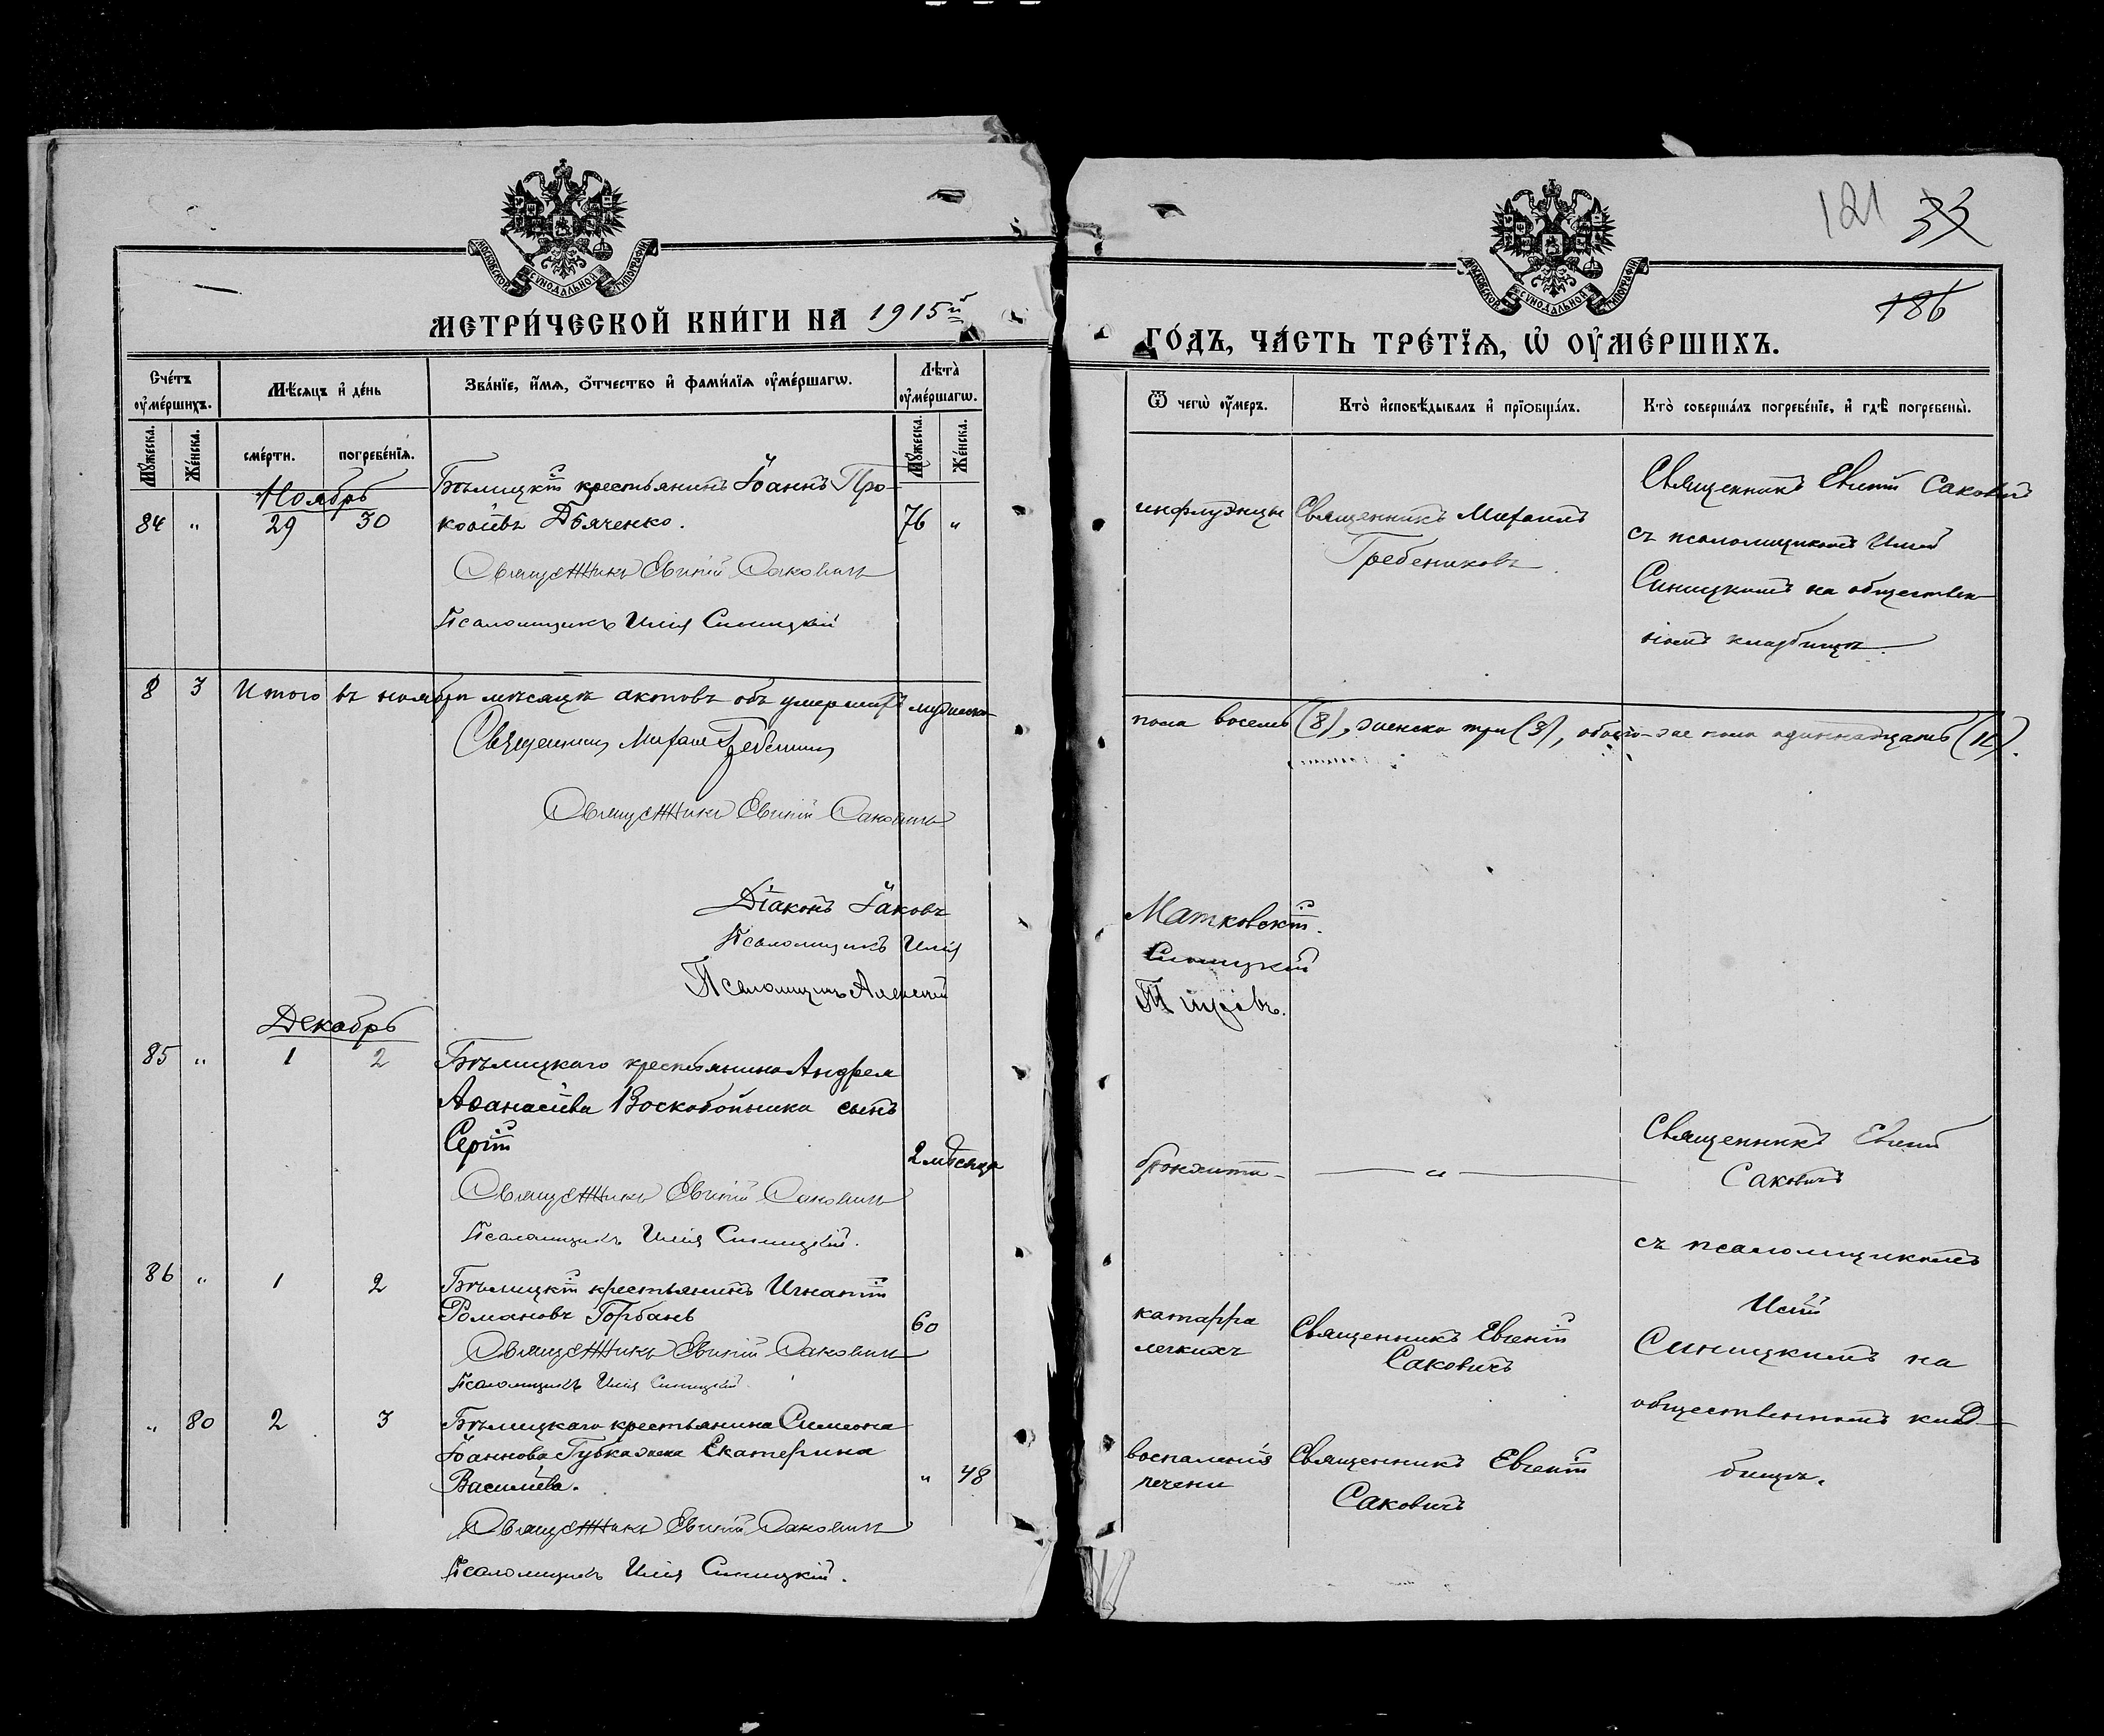 МОСКОВСКОЙ СѴНОДАЛЬНОЙ ТИПОГРАФІИ
МЕТРИ́ЧЕСКОЙ КНИ́ГИ НА 1915й
Сче́тъ оу҆ме́ршихъ.
Мѣ́сяцъ и҆ де́нь
Зва́нїе, и҆́мѧ, ѻ҆́тчество и҆ фами́лїѧ оу҆ме́ршагѡ.
Лѣ́та оу҆ме́ршагѡ.
Мꙋ́жеска.
Же́нска.
сме́рти.
погребе́нїѧ.
Мꙋ́жеска.
Же́нска.
Ноябрь
84 " 29 30 Бѣлицкій крестьянинъ Іоаннъ Про-
копіевъ Дьяченко. 76 "
Священникъ Евгеній Саковичъ
Псаломщикъ Илія Синицкій
8 3 Итого въ ноябрѣ мѣсяцѣ актовъ объ умершихъ мужеска
Священникъ Михаилъ Гребениковъ
Священникъ Евгеній Саковичъ
Діаконъ Іаковъ
Псаломщикъ Илія
Псаломщикъ Алексій
Декабрь
85 " 1 2 Бѣлицкаго крестьянина Андрея
Аѳанасіева Воскобойника сынъ
Сергій 2 мѣсяца
Священникъ Евгеній Саковичъ
Псаломщикъ Илія Синицкій.
86 " 1 2 Бѣлицкій крестьянинъ Игнатій
Романовъ Горбань 60
Священникъ Евгеній Саковичъ
Псаломщикъ Илія Синицкій
" 80 2 3 Бѣлицкаго крестьянина Симеона
Іоаннова Губка жена Екатерина
Василіева. " 48
Священникъ Евгеній Саковичъ
Псаломщикъ Илія Синицкій.
121 33
186
МОСКОВСКОЙ СѴНОДАЛЬНОЙ ТИПОГРАФІИ
ГО́ДЪ, ЧА́СТЬ ТРЕ́ТЇѦ, Ѡ҆ ОУ҆МЕ́РШИХЪ.
Ѿ чегѡ̀ оу҆́меръ.
Кто̀ и҆сповѣ́дывалъ и҆ прїѻбща́лъ.
Кто̀ соверша́лъ погребе́нїе, и҆ гдѣ̀ погребены̀.
инфлуэнцы
Священникъ Михаилъ
Гребениковъ
Священникъ Евгеній Саковичъ
съ псаломщикомъ Иліей
Синицкимъ на обществен-
номъ кладбищѣ.
пола восемь (8), женска три (3), обоего-же пола одиннадцать (11).
Матковскій.
Синицкій
бронхита
— " —
Священникъ Евгеній
Саковичъ
съ псаломщикомъ
Иліей
Синицкимъ на
общественномъ клад-
бищѣ.
катарра
легкихъ
Священникъ Евгеній
Саковичъ
воспаленія
печени
Священникъ Евгеній
Саковичъ